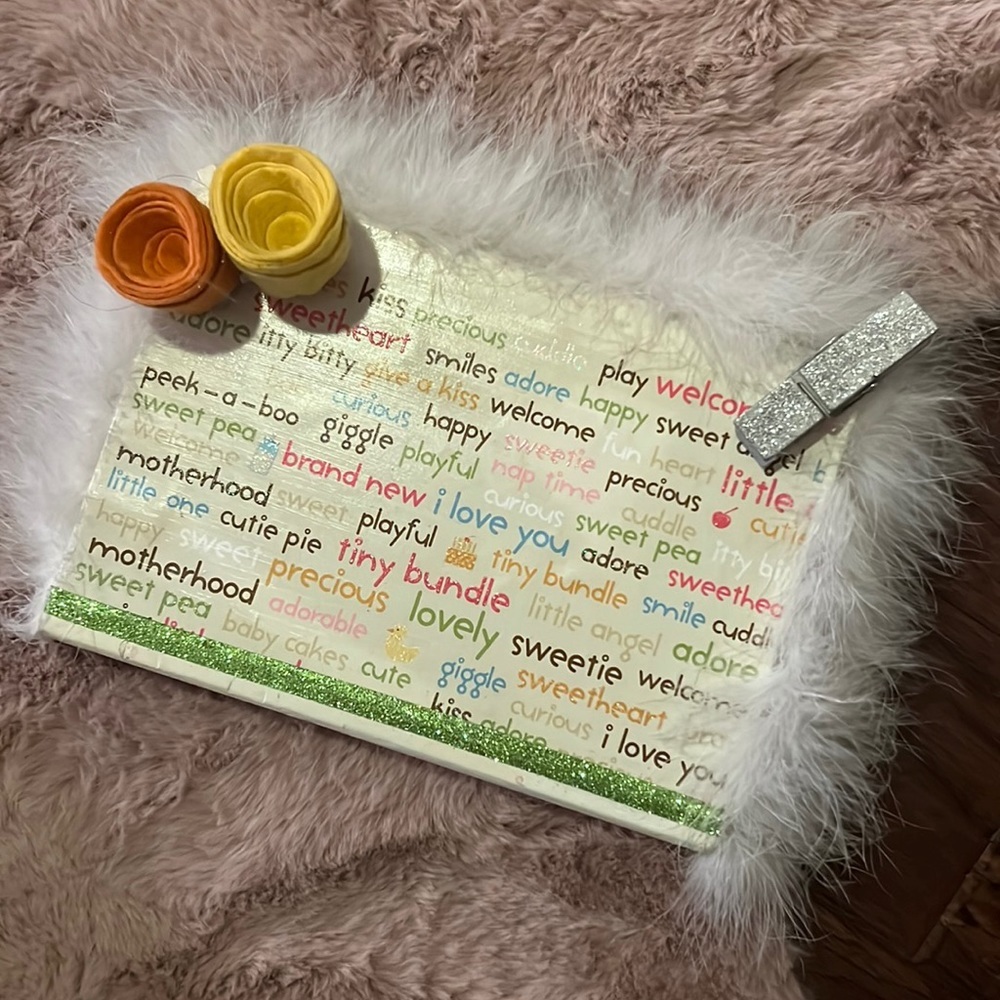 kiss precious cuddle
sweetheart smiles adore happy sweet angel
adore itty bitty give a kiss welcome fun heart little
play welcome
peek-a-boo curious happy sweetie precious
sweet pea giggle playful nap time cuddle
welcome brand new curious sweet pea itty
motherhood sweet i love you adore
little one cutie pie playful tiny bundle smile
happy sweet tiny bundle little angel adore
motherhood precious lovely sweetie
sweet pea adorable giggle sweetheart
baby cakes cute curious i love you
kiss adore